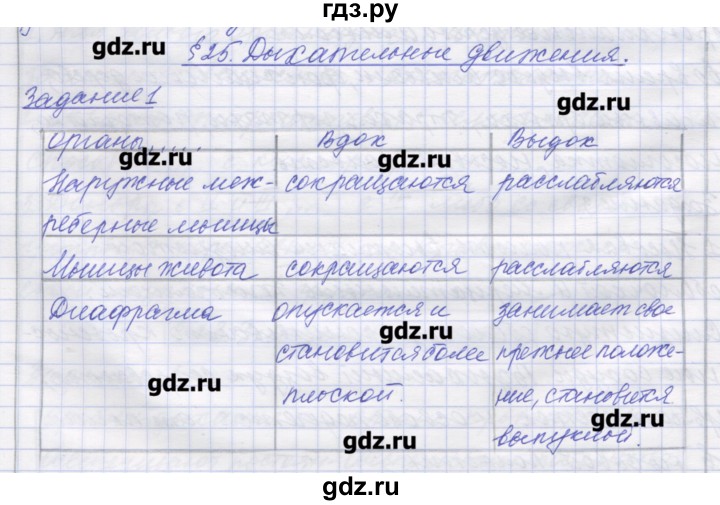 гдз.ру
gdz.ru
§25. Дыхательные движения.
Задание 1
gdz.ru
органы..... Вдох Выдох
gdz.ru gdz.ru
Наружные меж- сокращаются расслабляются
реберные мышцы
Мышцы живота сокращаются расслабляются
Диафрагма опускается и занимает свое
gdz.ru
становится более прежнее положе-
gdz.ru
плоской. ние, становится
gdz.ru
выпуклой.
gdz.ru
gdz.ru